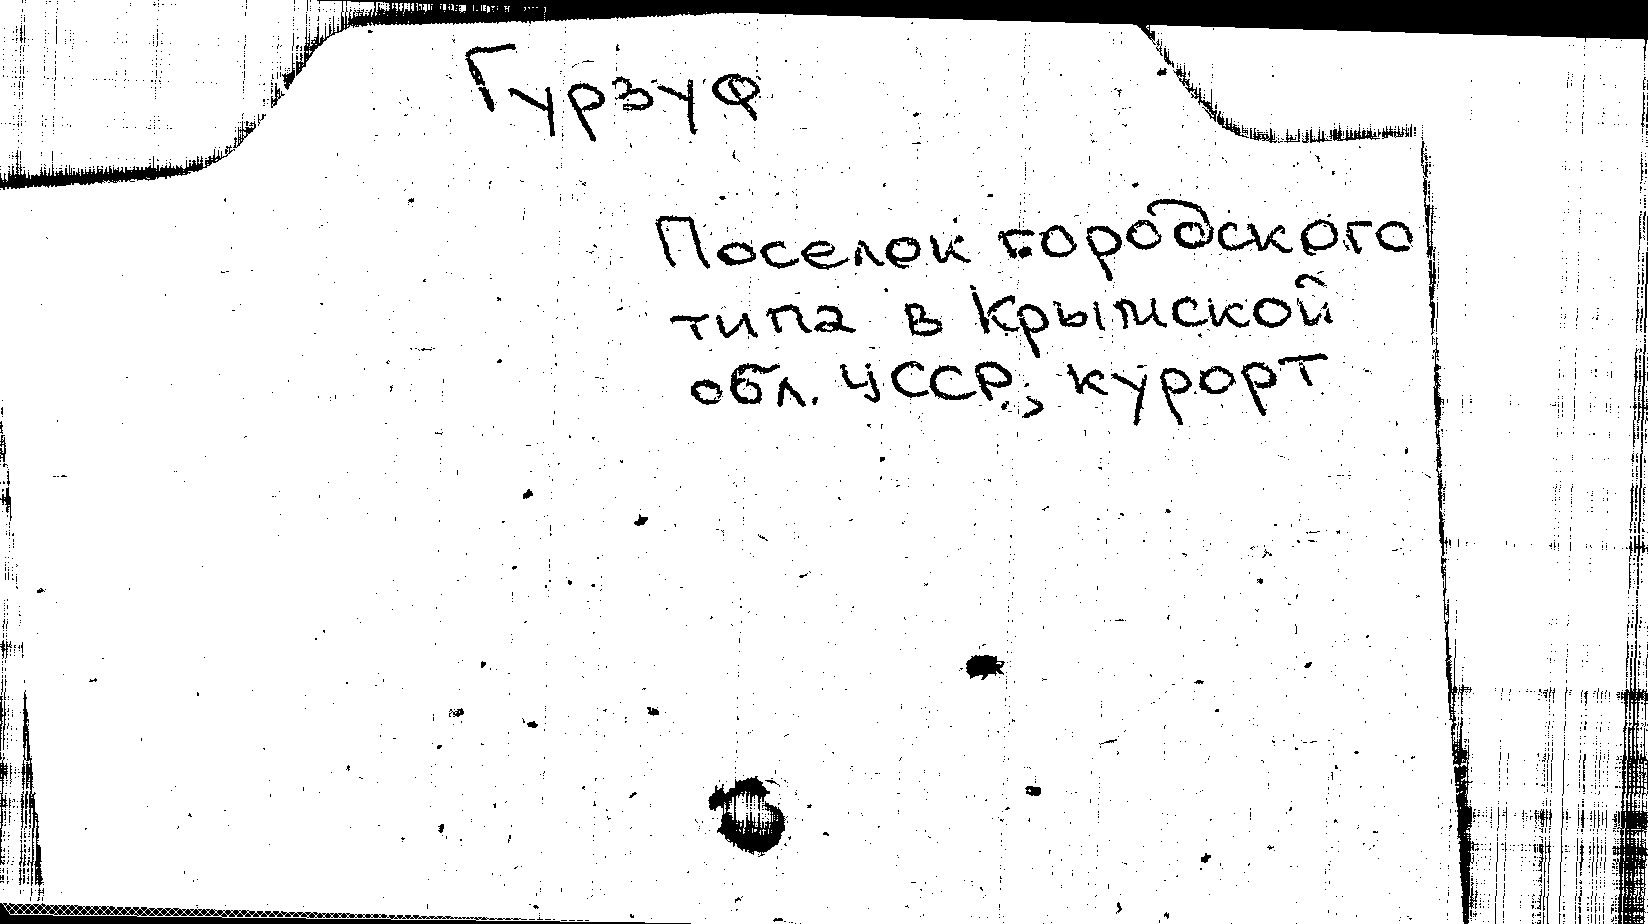 Гурзуф
Поселок городского
типа в Крымской
обл. УССР, курорт